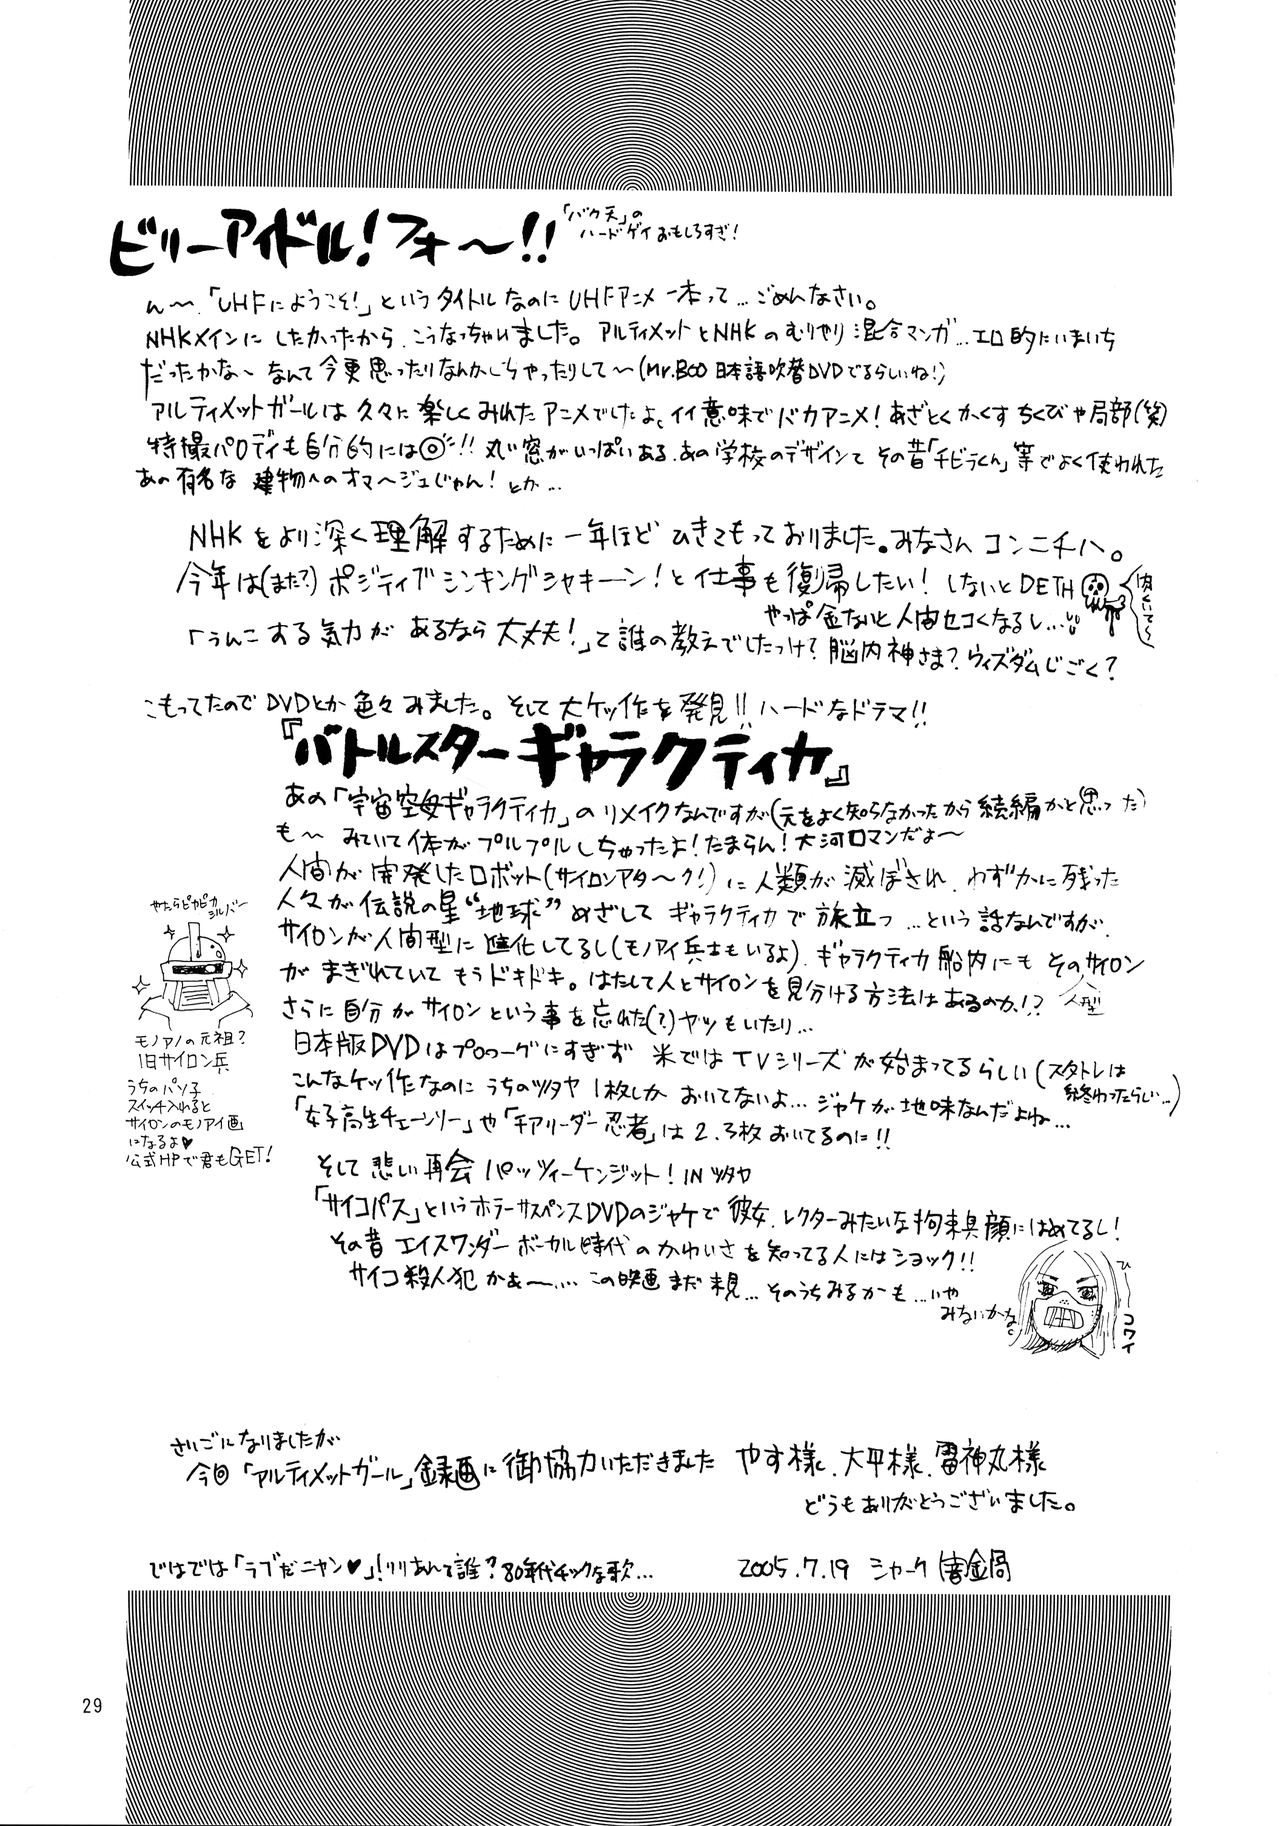 ビリーアイドル!フォ〜!!
「バク天」の
ハードゲイおもしろすぎ!
ん〜、「UHFにようこそ!」というタイトルなのにUHFアニメ一本って…ごめんなさい。
NHKメインにしたかったから、こうなっちゃいました。アルティメットとNHKのむりやり混合マンガ…エロ的にいまいち
だったかな〜なんて今更思ったりなんかしちゃったりして〜(Mr.BOO日本語吹替DVDでるらしいね!)
アルティメットガールは久々に楽しくみれたアニメでしたよ、イイ意味でバカアニメ!あざとくかくすちくびや局部(笑)
特撮パロディも自分的には◎!!丸い窓がいっぱいある、あの学校のデザインて その昔「チビラくん」等でよく使われた
あの有名な 建物へのオマージュじゃん!とか…
NHKをより深く理解するために一年ほどひきこもっておりました。みなさんコンニチハ。
今年は(また?)ポジティブシンキングシャキーン!と仕事も復帰したい!しないとDETH
肉くいて〜
やっぱ金ないと人間セコくなるし…
「うんこする気力があるなら大丈夫!」て誰の教えでしたっけ?脳内神さま?ウィズダムじごく?
こもってたのでDVDとか色々みました。そして大ケッ作を発見!!ハードなドラマ!!
『バトルスターギャラクティカ』
あの「宇宙空母ギャラクティカ」のリメイクなんですが(元をよく知らなかったから続編かと思った)
も〜みていて体がプルプルしちゃったよ!たまらん!大河ロマンだよ〜
人間が開発したロボット(サイロンアタ〜ク!)に人類が滅ぼされ、わずかに残った
人々が伝説の星“地球”めざしてギャラクティカで旅立つ…という話なんですが、
サイロンが人間型に進化してるし(モノアイ兵士もいるよ)、ギャラクティカ船内にもそのサイロン
人型
がまぎれていてもうドキドキ。はたして人とサイロンを見分ける方法はあるのか!?
さらに自分がサイロンという事を忘れた(?)ヤツもいたり…
日本版DVDはプロローグにすぎず 米ではTVシリーズが始まってるらしい(スタトレは
終わったらしい…)
こんなケッ作なのにうちのツタヤ1枚しかおいてないよ…ジャケが地味なんだよね…
「女子高生チェーンソー」や「チアリーダー忍者」は2、3枚おいてるのに!!
やたらピカピカ
シルバー
モノアイの元祖?
旧サイロン兵
うちのパソ子
スイッチ入れると
サイロンのモノアイ画
になるよ♥
公式HPで君もGET!
そして悲しい再会パッツィーケンジット!INツタヤ
「サイコパス」というホラーサスペンスDVDのジャケで彼女、レクターみたいな拘束具顔にはめてるし!
その昔エイスワンダーボーカル時代のかわいさを知ってる人にはショック!!
サイコ殺人犯かぁ〜…この映画まだ未見…そのうちみるかも…いや
みないかな。
ひ〜コワイ
さいごになりましたが
今回「アルティメットガール」録画に御協力いただきました やす様、大平様、雷神丸様
どうもありがとうございました。
ではでは「ラブだニャン♥」!リリあんて誰?80年代チックな歌…
2005.7.19 シャーク
29